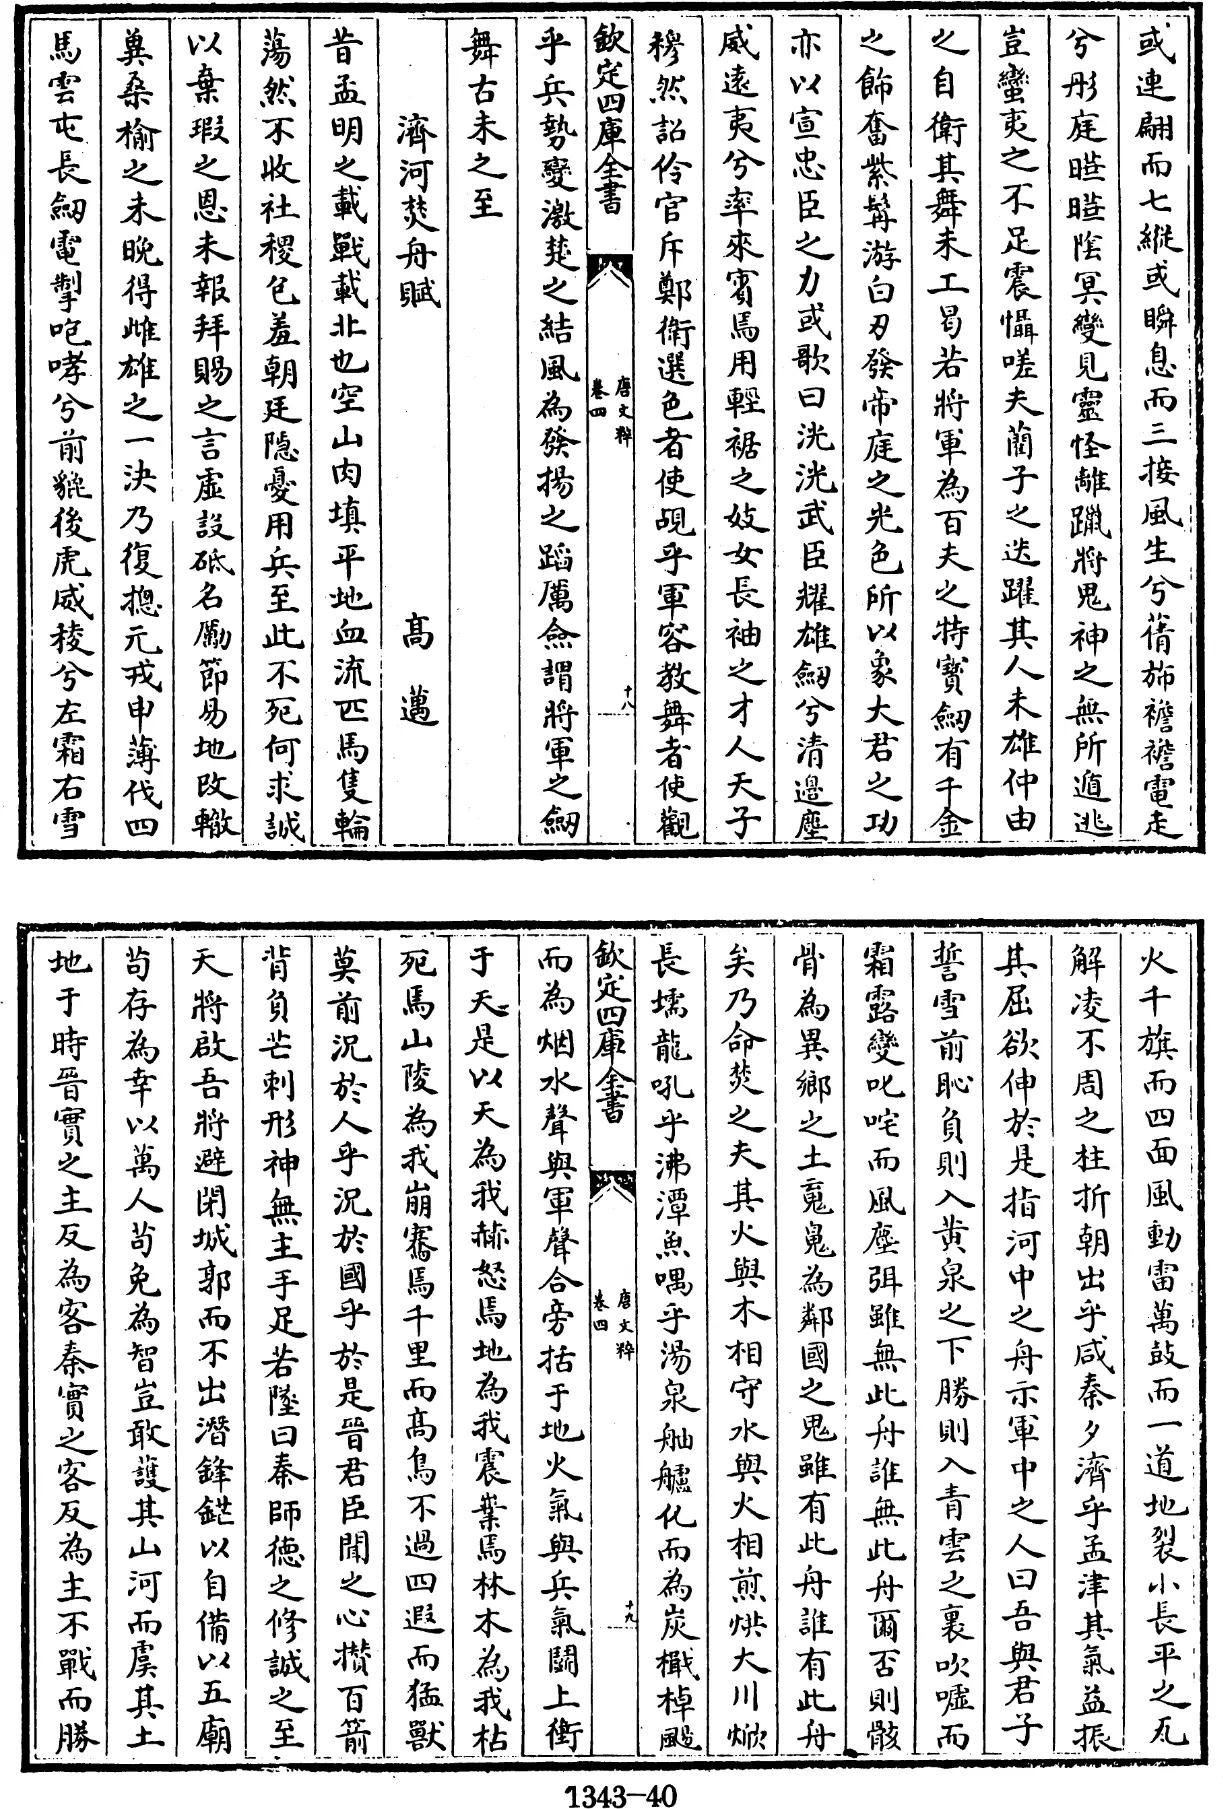 或連翩而七縱或瞬息而三接風生兮蒨斾襜襜電走
兮彤庭曀曀陰冥變見靈怪離躐將鬼神之無所遁逃
豈蠻夷之不足震懾嗟夫藺子之迭躍其人未雄仲由
之自衛其舞未工曷若將軍為百夫之特寳劒有千金
之飾奮紫髯游白刃發帝庭之光色所以象大君之功
亦以宣忠臣之力或歌曰洸洸武臣耀雄劒兮清邊塵
威遠夷兮率來賓焉用輕裾之妓女長袖之才人天子
穆然詔伶官斥鄭衛選色者使覘乎軍容教舞者使觀
欽定四庫全書
唐文粹
卷四
十八
乎兵勢變激楚之結風為發揚之蹈厲僉謂將軍之劒
舞古未之至
濟河焚舟賦
高邁
昔孟明之載戰載北也空山肉填平地血流匹馬隻輪
蕩然不收社稷包羞朝廷隠憂用兵至此不死何求誠
以棄瑕之恩未報拜賜之言虛設砥名勵節易地改轍
冀桑榆之未晩得雌雄之一決乃復摠元戎申薄伐四
馬雲屯長劒電掣咆哮兮前貔後虎威稜兮左霜右雪
火千旗而四面風動雷萬鼓而一道地裂小長平之瓦
解凌不周之柱折朝出乎咸秦夕濟乎孟津其氣益振
其屈欲伸於是指河中之舟示軍中之人曰吾與君子
誓雪前恥負則入黄泉之下勝則入青雲之裏吹噓而
霜露變叱咤而風塵弭雖無此舟誰無此舟爾否則骸
骨為異鄉之土䰟鬼為鄰國之鬼雖有此舟誰有此舟
矣乃命焚之夫其火與木相守水與火相煎烘大川焮
長壖龍吼乎沸潭魚喁乎湯泉舳艫化而為炭檝棹颷
欽定四庫全書
唐文粹
卷四
十九
而為烟水聲與軍聲合旁括于地火氣與兵氣鬭上衝
于天是以天為我赫怒焉地為我震業焉林木為我枯
死焉山陵為我崩騫焉千里而高鳥不過四遐而猛獸
莫前況於人乎況於國乎於是晉君臣聞之心攢百箭
背負芒刺形神無主手足若墜曰秦師徳之修誠之至
天將啟吾將避閉城郭而不出潛鋒鋩以自備以五廟
苟存為幸以萬人苟免為智豈敢護其山河而虞其土
地于時晉實之主反為客秦實之客反為主不戰而勝
1343-40